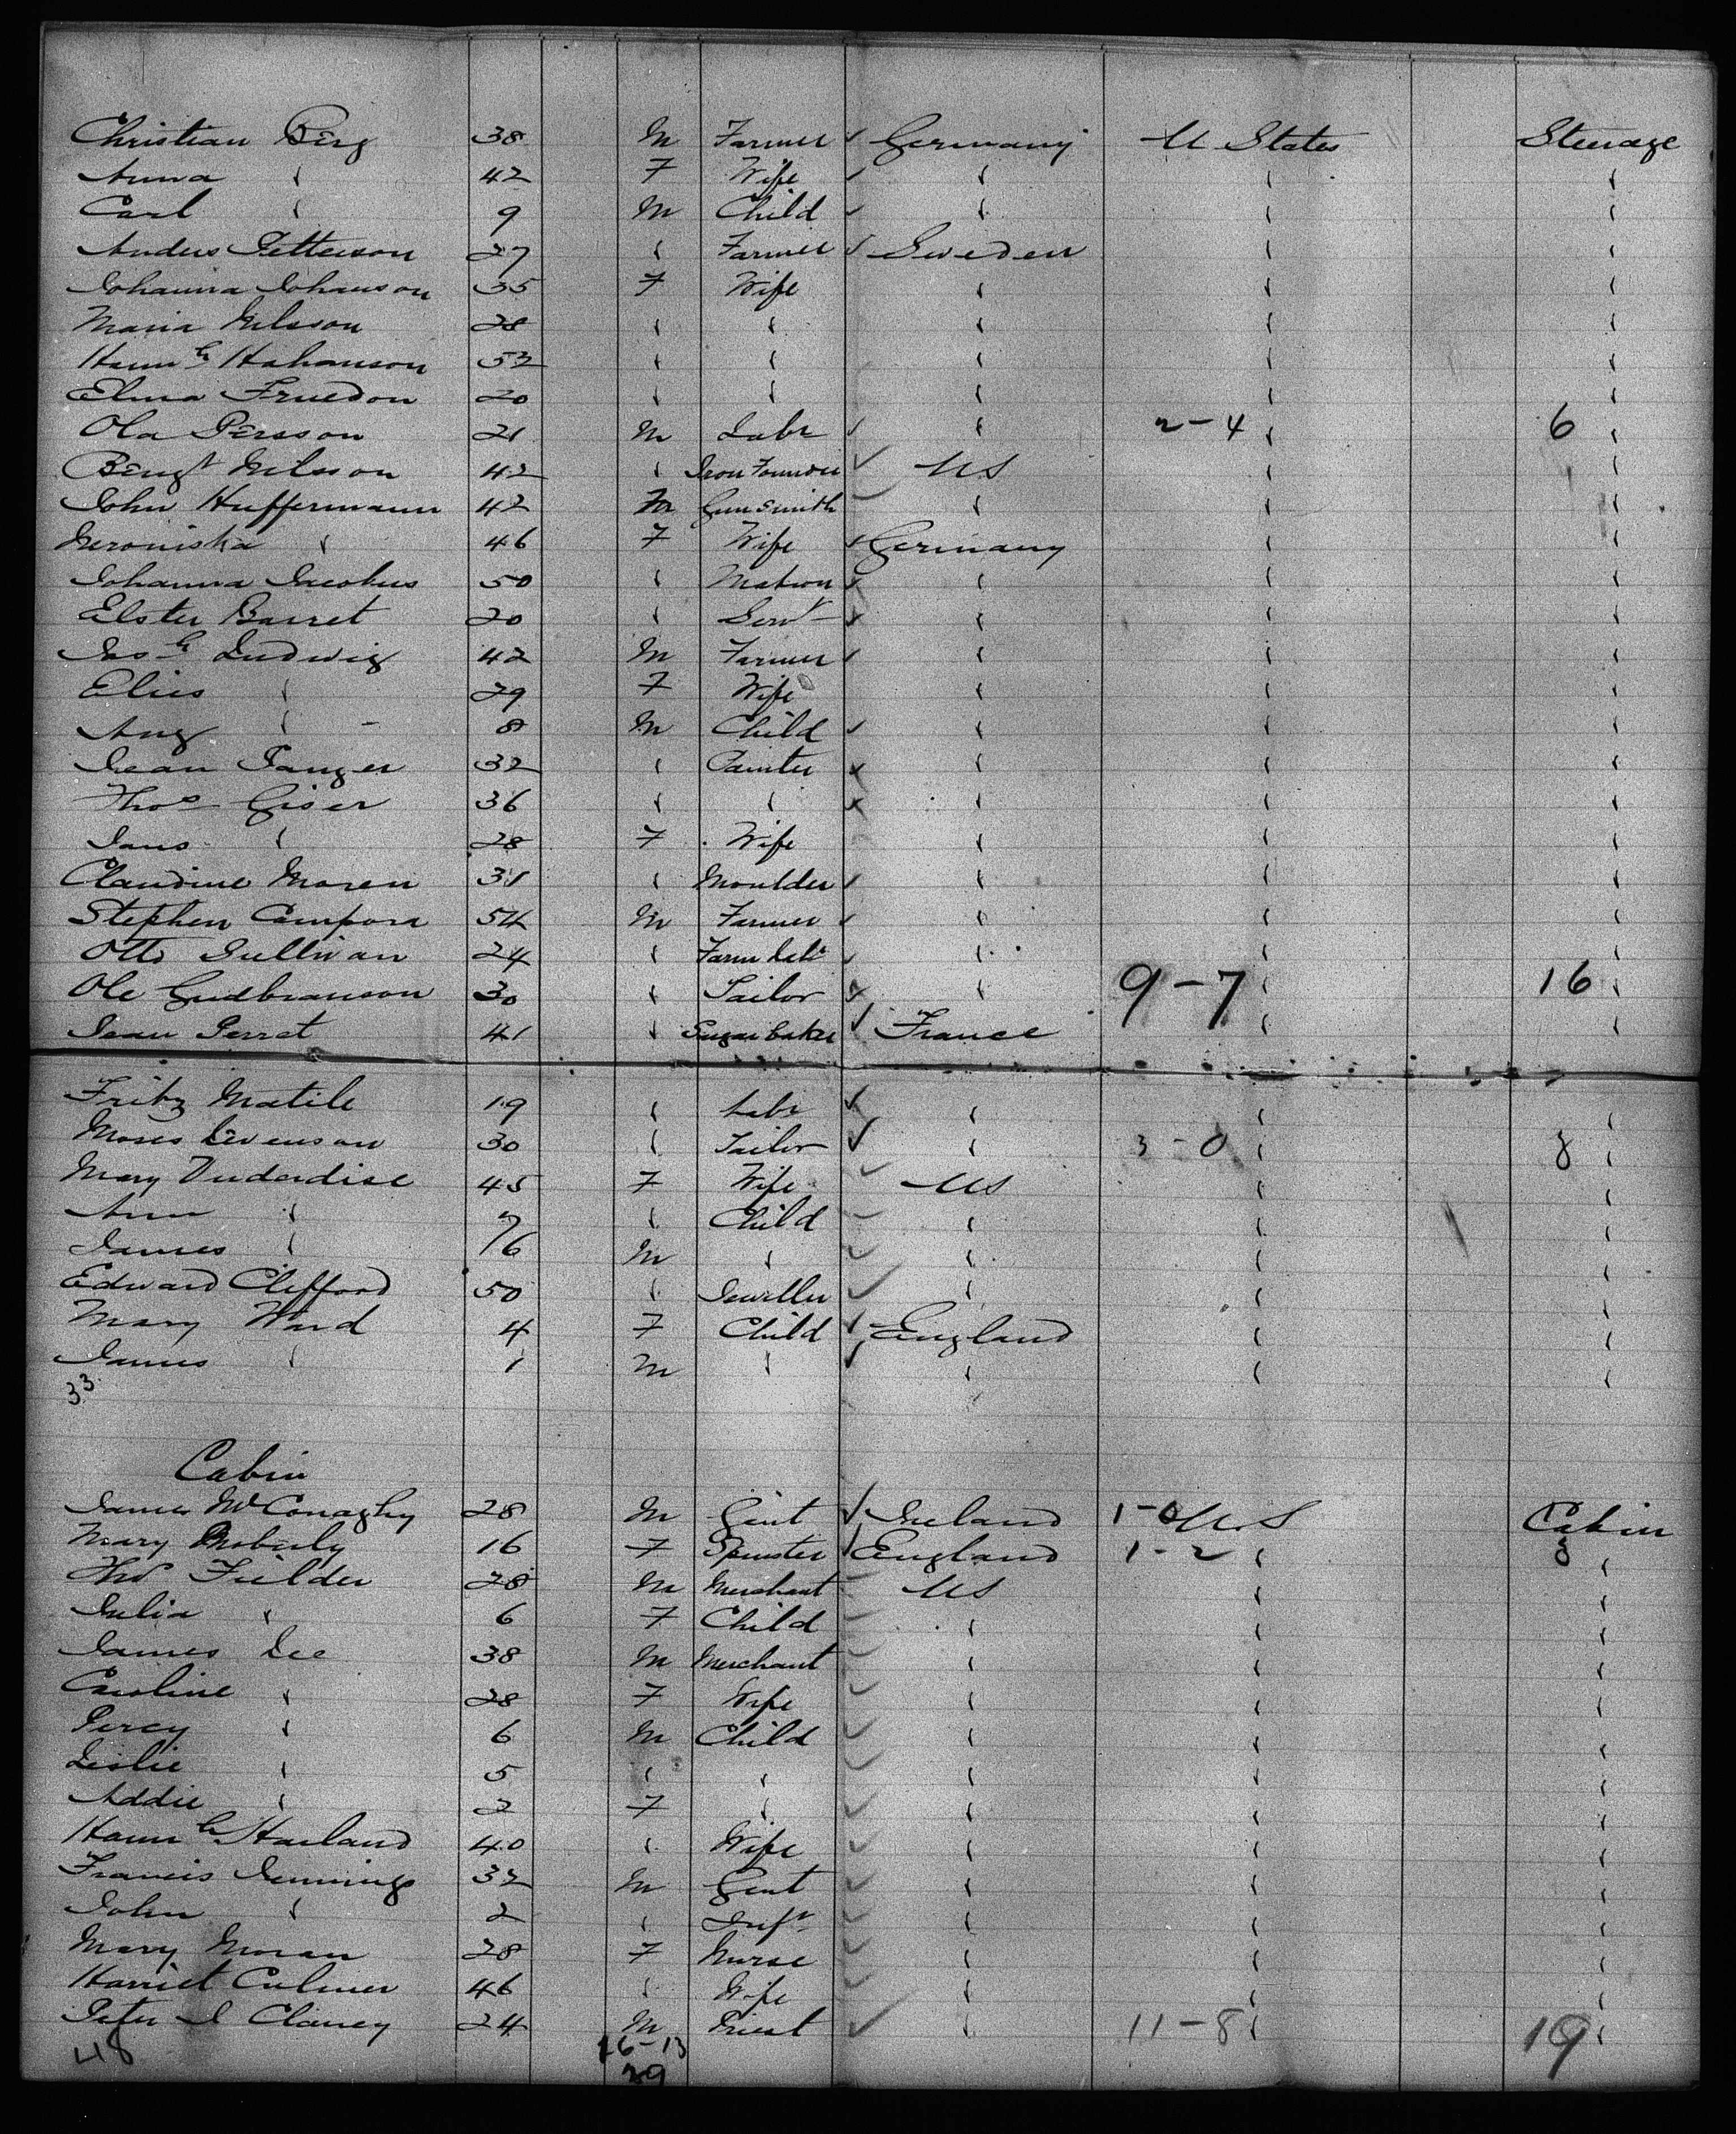 Christian Berg 38 M Farmer ✓ Germany U States Steerage
Anna " 42 F Wife ✓ " " "
Carl " 9 M Child ✓ " " "
Anders Petterson 27 " Farmer ✓ Sweden " "
Johanna Johanson 35 F Wife " " "
Maria Nilsson 28 " " " " "
Hannh Hahanson 52 " " " " "
Elma Fruedon 20 " " " " "
Ola Persson 21 M Labr ✓ " 2-4 " 6 "
Bengt Nilsson 42 " Iron Founder ✓ US " "
John Huffermann 42 M Gunsmith ✓ " " "
Meroniska " 46 F Wife ✓ Germany " "
Johanna Jacobus 50 " Matron ✓ " " "
Elster Barret 20 " Servt ✓ " " "
Josh Ludwig 42 M Farmer ✓ " " "
Elies " 29 F Wife " " "
Aug " - 8 M Child ✓ " " "
Jean Panger 32 " Painter x " " "
Thos Giser 36 " " x " " "
Jans " 28 F Wife " " "
Claudine Moren 31 " Moulder ✓ " " "
Stephen Campora 54 M Farmer ✓ " " "
Otto Sullivan 24 " Farm Labr ✓ " " "
Ole Gudbranson 30 " Tailor x " 9-7 " 16 "
Jean Perret 41 " Sugar baker ✓ France " "
Fritz Matile 19 " Labr ✓ " " "
Moses Levenson 30 " Tailor ✓ " 3-0 " 8 "
Mary 45 F Wife ✓ US " "
Ann " 7 " Child ✓ " " "
James " 6 M " ✓ " " "
Edward Clifford 50 " Jeweller ✓ " " "
Mary Ward 4 F Child ✓ England " "
James " 1 M " ✓ " " "
33
Cabin
James McConaghy 28 M Gent ✓ Ireland 1-0 U.S Cabin
Mary Moberly 16 F Spinster ✓ England 1-2 " "
Thos Fielder 28 M Merchant ✓ US " "
Julia " 6 F Child ✓ " " "
James Lee 38 M Merchant ✓ " " "
Caroline " 28 F Wife ✓ " " "
Percy " 6 M Child ✓ " " "
Leslie " 5 " " ✓ " " "
Addie " 2 F " ✓ " " "
Hannh Harland 40 " Wife ✓ " " "
Francis Jennings 32 M Gent ✓ " " "
John " 2 " Inft ✓ " " "
Mary Moran 28 F Nurse ✓ " " "
Harriet Culmer 46 " Wife ✓ " " "
Peter J Clancy 24 M Priest ✓ " 11-8 " 19 "
48 16-13
29